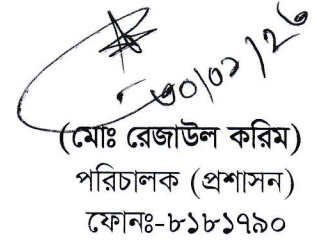 ৩০/০১/২৬
(মোঃ রেজাউল করিম)
পরিচালক (প্রশাসন)
ফোনঃ-৮১৮১৭৯০